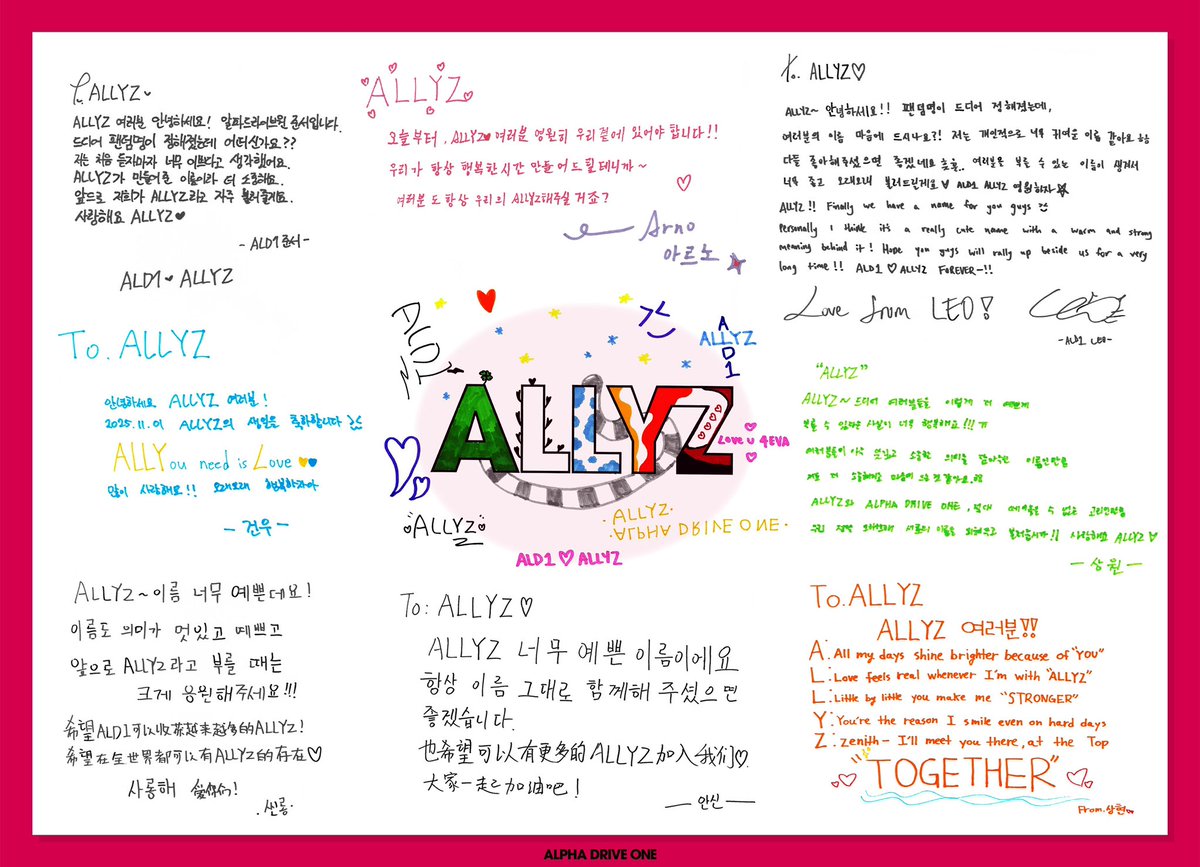 To. ALLYZ
ALLYZ 여러분 안녕하세요! 알파드라이브원 준서입니다.
드디어 팬덤명이 정해졌는데 어떠신가요??
저는 처음 듣자마자 너무 이쁘다고 생각했어요.
ALLYZ가 만들어준 이름이라 더 소중해요.
앞으로 저희가 ALLYZ라고 자주 불러줄게요.
사랑해요 ALLYZ♥
- ALD1 준서 -
ALD1♥ALLYZ
ALLYZ
오늘부터, ALLYZ♥여러분 영원히 우리 곁에 있어야 합니다!!
우리가 항상 행복한시간 만들어드릴테니까~
여러분도 항상 우리의 ALLYZ해주실 거죠?
Arno
아르노
To. ALLYZ♡
ALLYZ~ 안녕하세요!! 팬덤명이 드디어 정해졌는데,
여러분의 이름 마음에 드시나요?! 저는 개인적으로 너무 귀여운 이름 같아요 ㅎㅎ
다들 좋아해주셨으면 좋겠네요 ㅎㅎ.. 여러분을 부를 수 있는 이름이 생겨서
너무 좋고 오래오래 불러드릴게요 ALD1 ALLYZ 영원하자
ALLYZ!! Finally we have a name for you guys
Personally I think it's a really cute name with a warm and strong
meaning behind it! Hope you guys will rally up beside us for a very
long time!! ALD1 ♡ ALLYZ FOREVER~!!
Love from LEO!
- ALD1 LEO -
To. ALLYZ
안녕하세요 ALLYZ 여러분!
2025.11.01 ALLYZ의 생일은 축하합니다
ALLYou need is Love
많이 사랑해요!! 오래오래 행복하자아
- 건우 -
ALD1
ALD1
ALLYZ
ALLYZ
Love u 4EVA
ALLYZ
ALLYZ
ALPHA DRIVE ONE
ALD1♡ALLYZ
"ALLYZ"
ALLYZ~ 드디어 여러분들을 이렇게 더 예쁘게
부를 수 있다는 사실이 너무 행복해요!!! ㅠ
여러분들이 아주 멋지고 소중한 의미를 담아주신 이름인만큼
저도 더 소중하게
ALLYZ와 ALPHA DRIVE ONE, 절대 떼어놓을 수 없는 고리인만큼
우리 정말 오래오래 서로의 이름을 외쳐주고 불러줍시다!! 사랑해요 ALLYZ♡
- 상원 -
ALLYZ~이름 너무 예쁜데요!
이름도 의미가 멋있고 예쁘고
앞으로 ALLYZ라고 부를 때는
크게 응원해주세요!!!
希望ALD1可以收获越来越多的ALLYZ!
希望在全世界都可以有ALLYZ的存在♡
사롱해 爱你们!
씬롱.
To: ALLYZ♡
ALLYZ 너무 예쁜 이름이에요
항상 이름 그대로 함께해 주셨으면
좋겠습니다.
也希望可以有更多的ALLYZ加入我们♡.
大家一起加油吧!
— 안신 —
To. ALLYZ
ALLYZ 여러분!!
A: All my days shine brighter because of "YOU"
L: Love feels real whenever I'm with "ALLYZ"
L: Little by little you make me "STRONGER"
Y: You're the reason I smile even on hard days
Z: Zenith- I'll meet you there, at the Top
"TOGETHER"
From. 상현
ALPHA DRIVE ONE